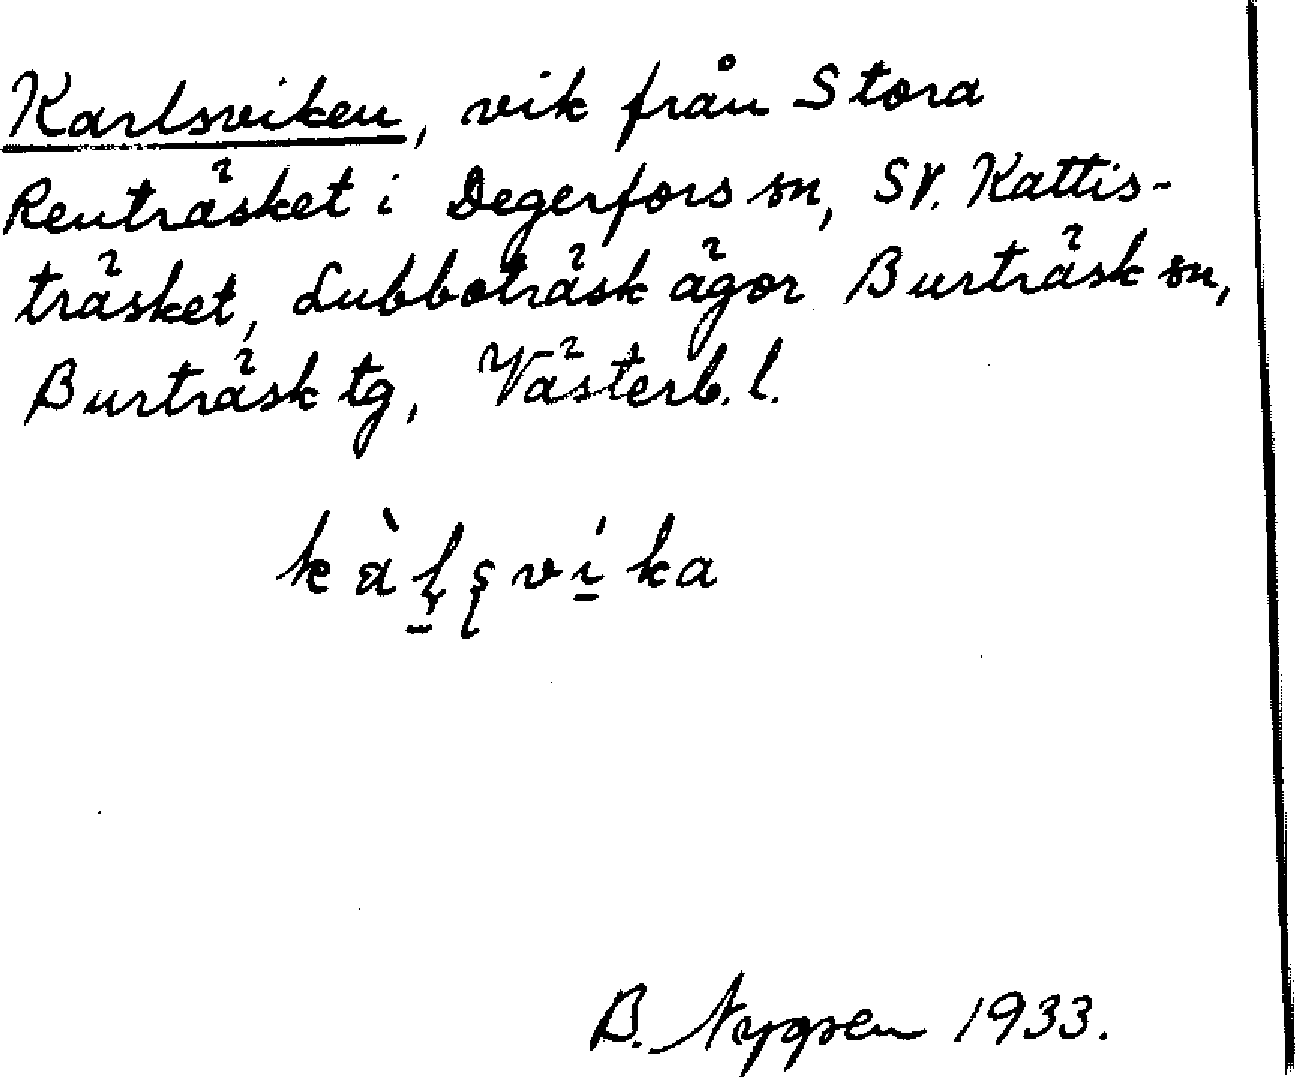 Karlsviken, vik från Stora
Renträsket i Degerfors sn, SV. Kattis-
träsket, Lubboträsk ägor Burträsk sn,
Burträsk tg, Västerb. l.
B. Nygren 1933.